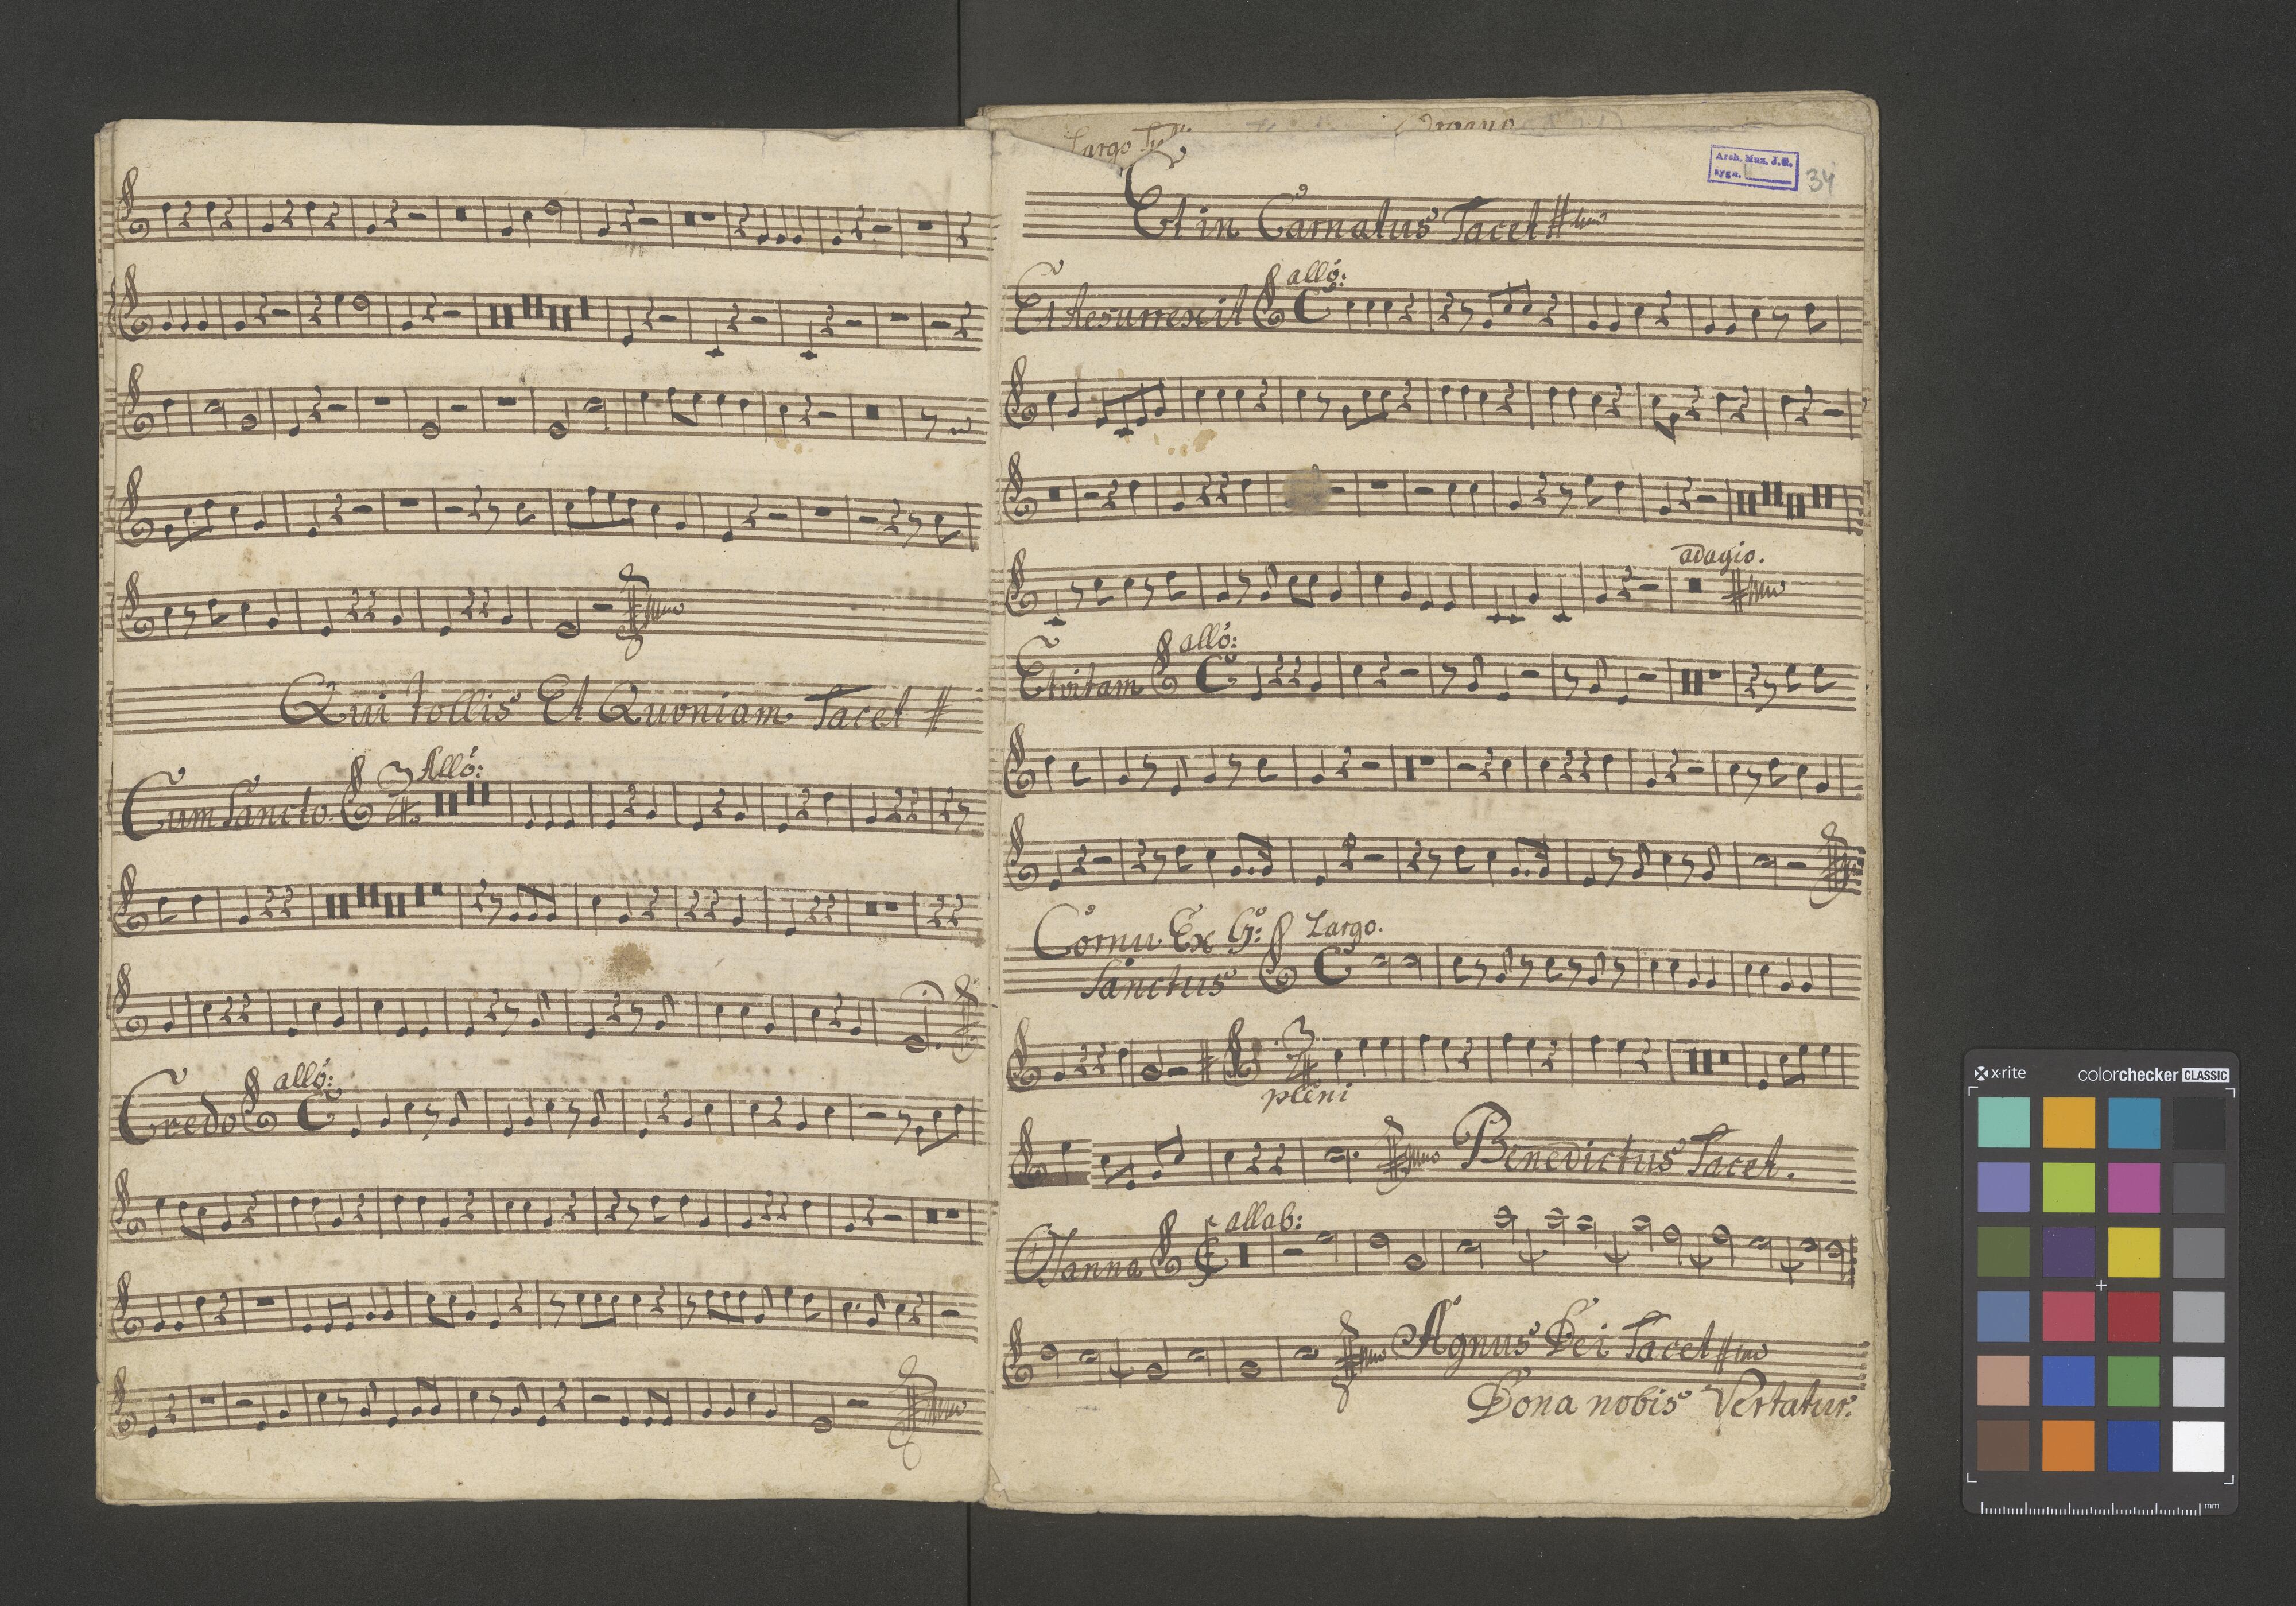 Qui tollis Et Quoniam Tacet
Alló:
Cum Sancto.
3
4
alló:
Credo
Largo
Organo
Arch. Muz. J.G.
sygn.
34
Et in Carnatus Tacet
alló:
Et Resurrexit
adagio.
alló:
Et vitam
Cornu Ex G: Largo.
Sanctus
3
4
pleni
Benedictus Tacet.
allab:
Osanna
Agnus Dei Tacet
Dona nobis Vertatur.
x·rite
colorchecker CLASSIC
mm